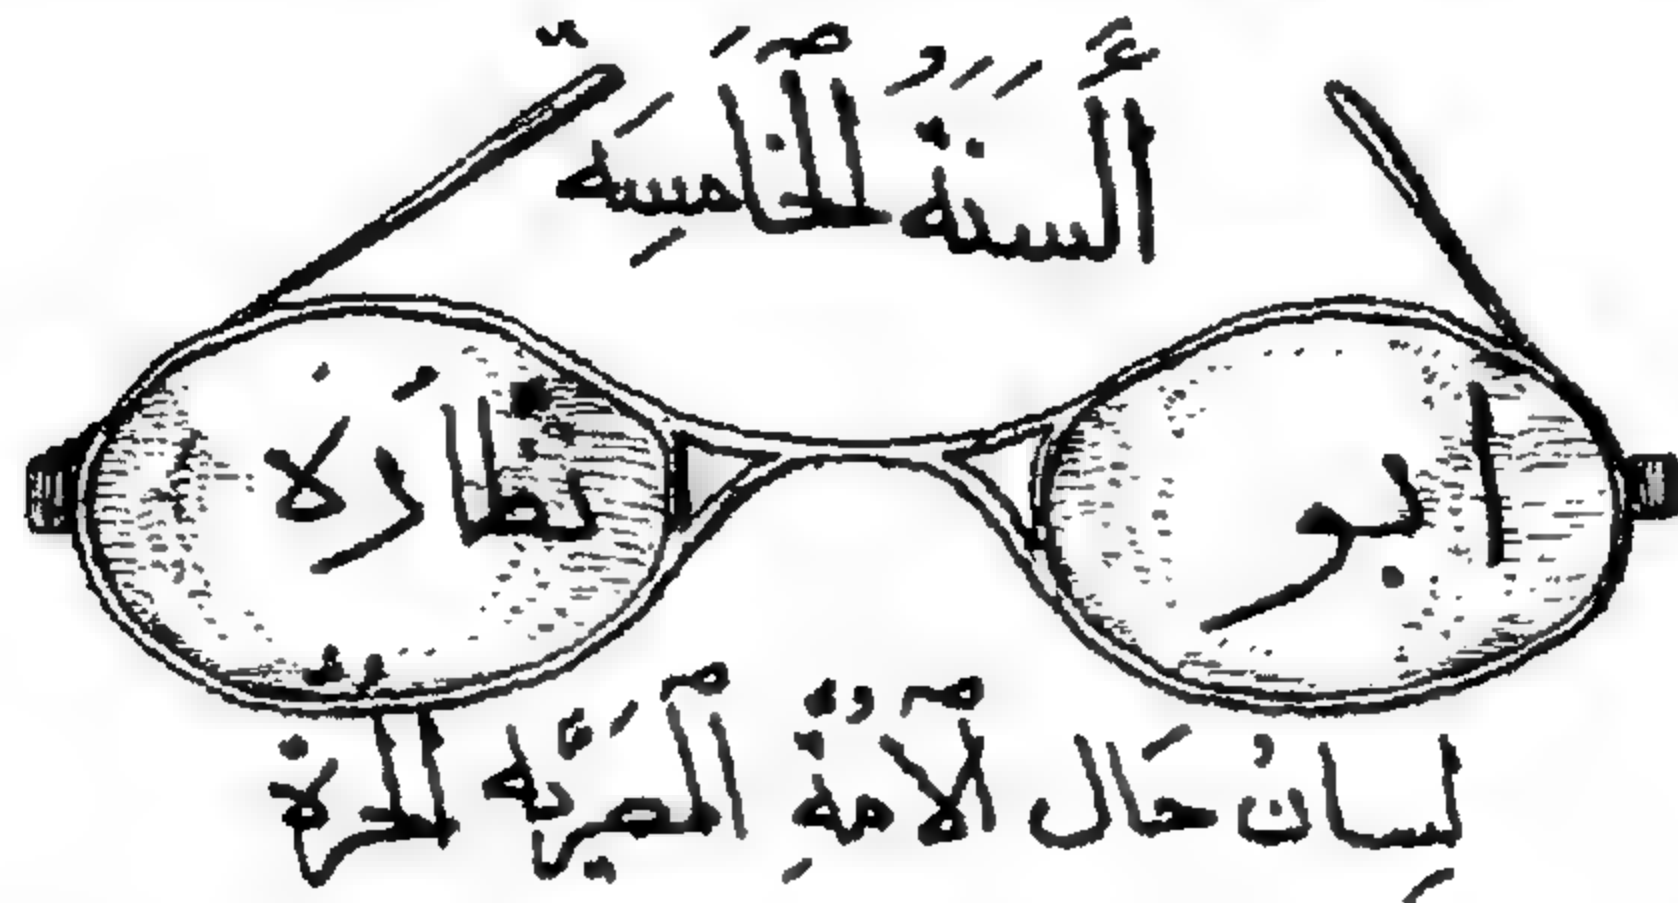 أَلسَنَةُ الخَامَسِة
ابو نظَارَه
لِسانُ حَال الأمةِ المصريَّه الحرة